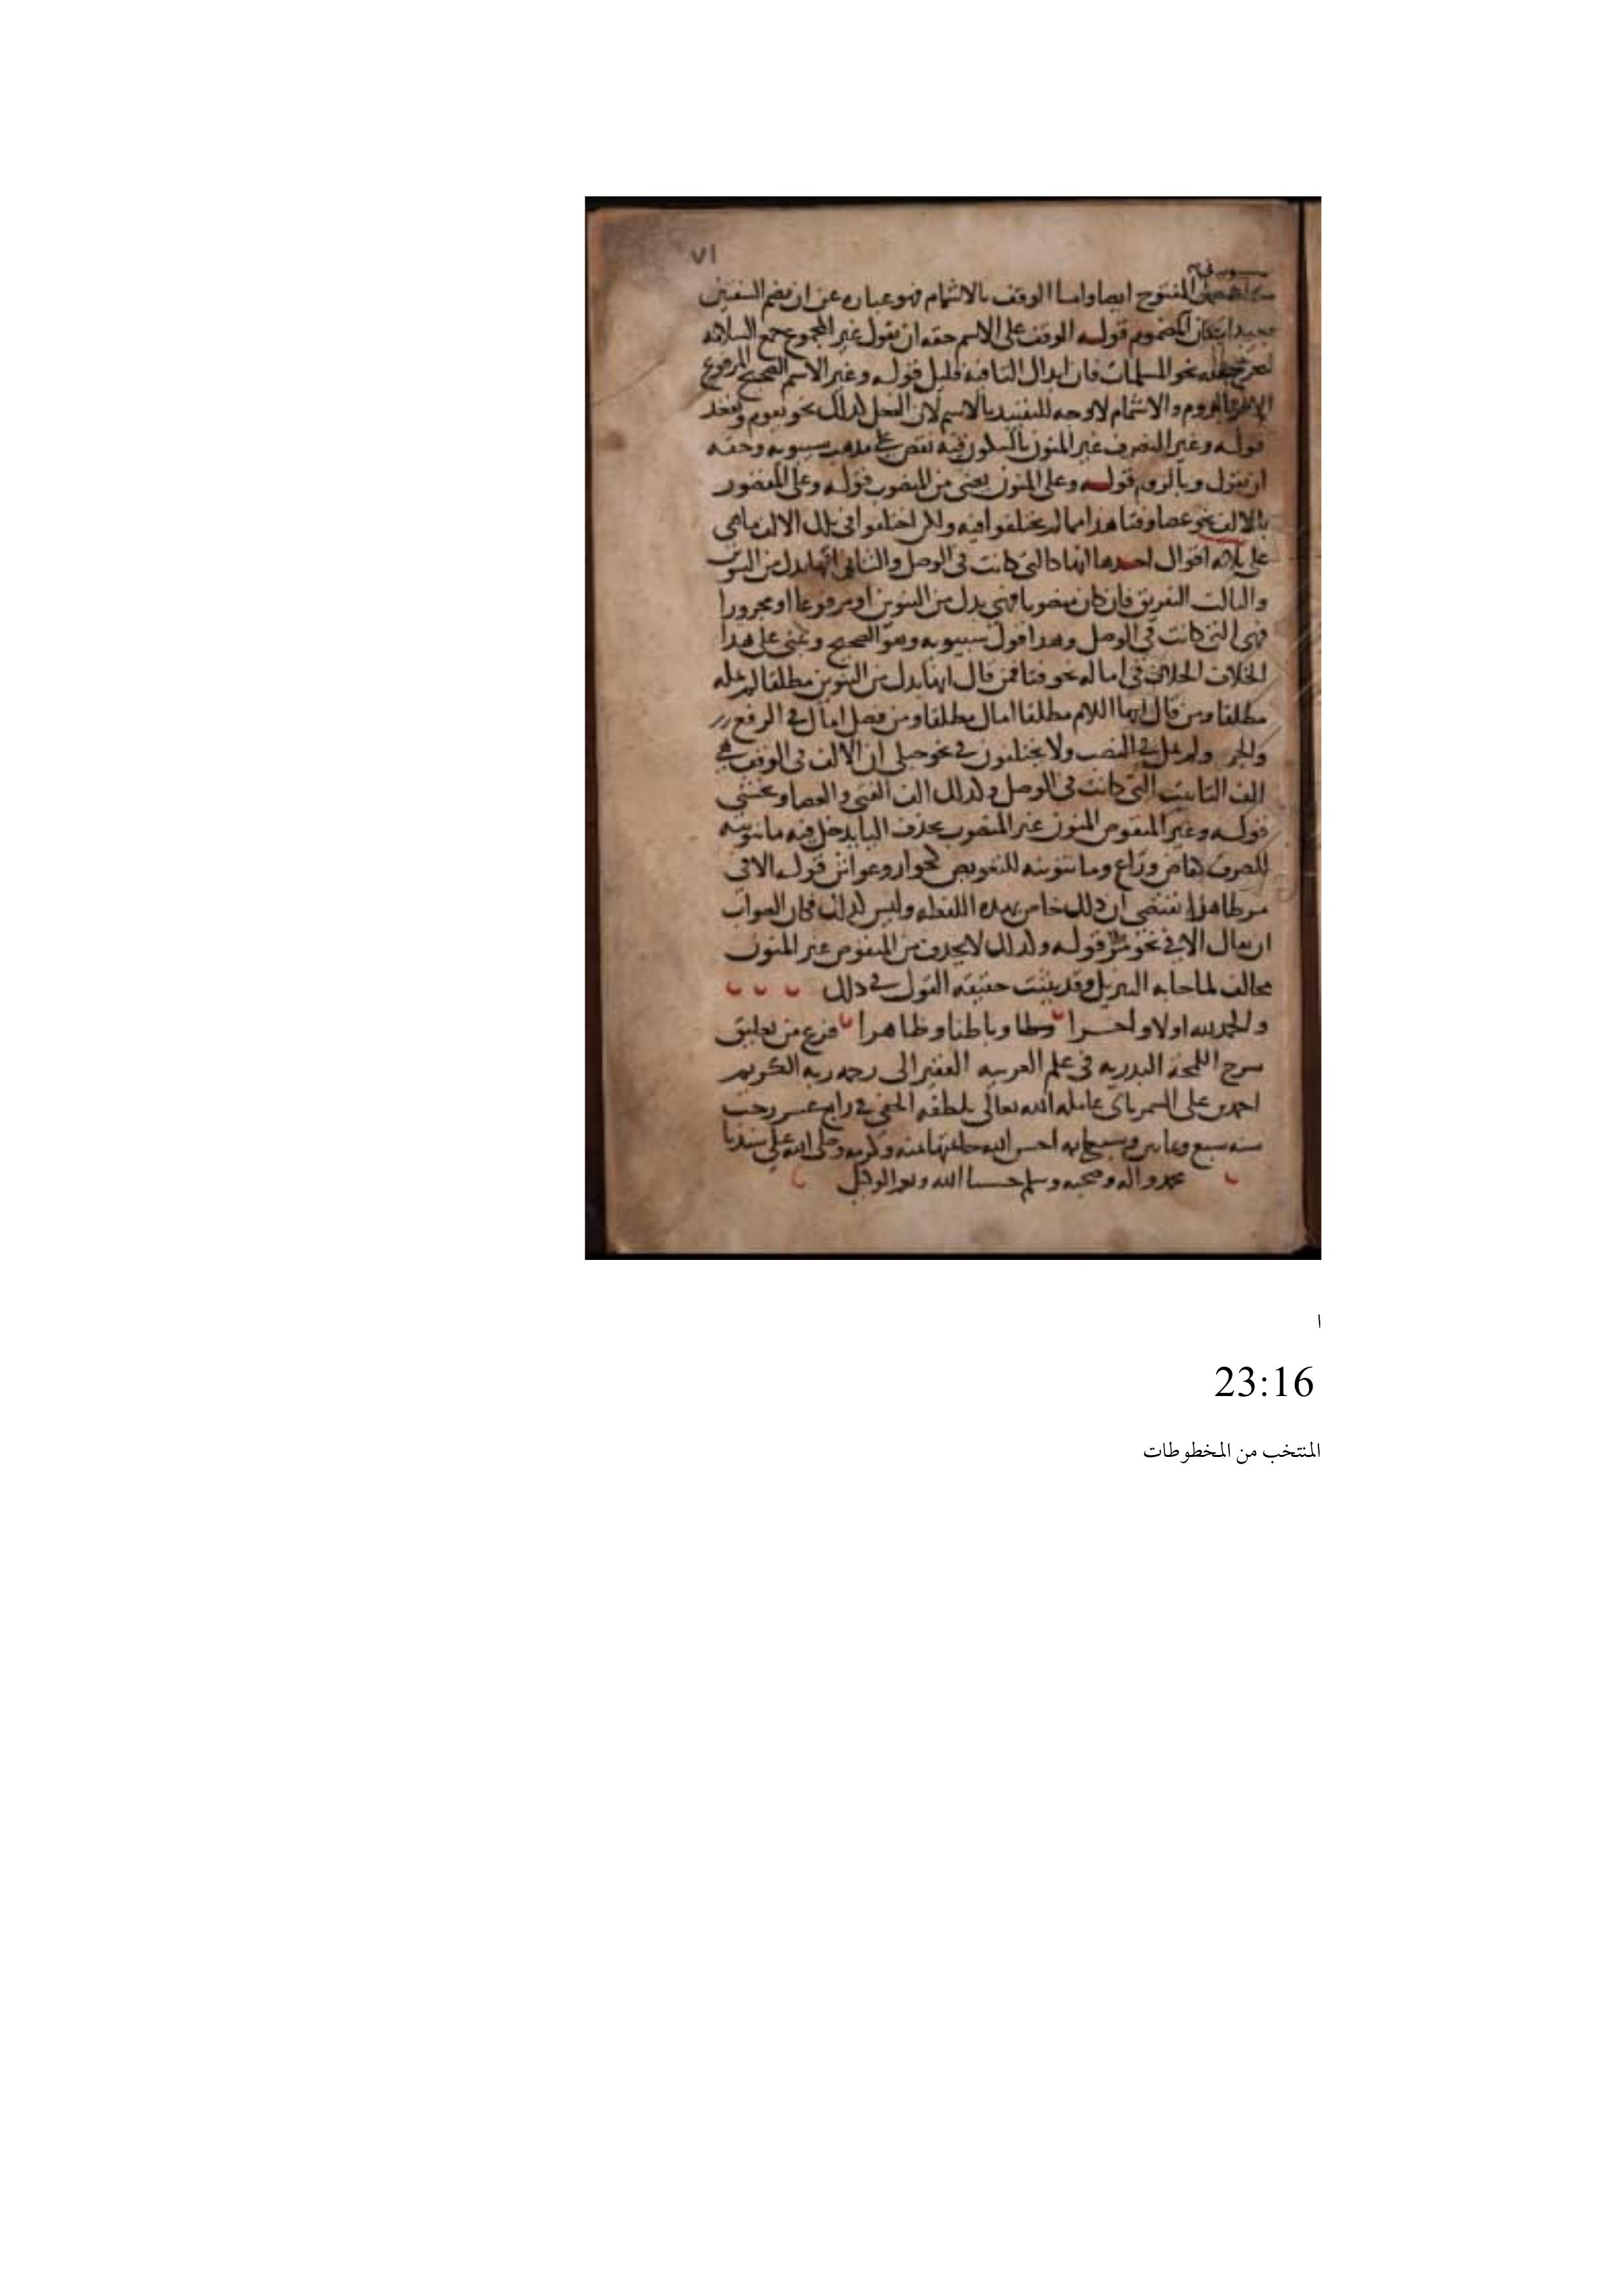 ٧١
المفتوح ايضا واما الوقف بالاشمام فهو عباره عن ان تضم الشفتين
المضموم قوله الوقف على الاسم حقه ان يقول غير المجموع جمع السلامه
نحو المسلمات فان ابدال التا فيه قليل قوله وغير الاسم الصحيح المرفوع
بالروم والاشمام لا وجه للتقييد بالاسم لان الفعل كذلك نحو يقوم
قوله وغير المنصرف غير المنون بالسكون فيه نقص على مذهب سيبويه وحقه
ان يقول وبالروم قوله وعلى المنون يعني من المنصوب قوله وعلى المقصور
بالالف نحو عصا وفتا هذا مما لم يختلفوا فيه ولكن اختلفوا في تلك الالف ماهي
على ثلاثه اقوال احدها انها التي كانت في الوصل والثاني انها بدل من التنوين
والثالث التفريق فان كان منصوبا فهي بدل من التنوين او مرفوعا او مجرورا
فهي التي كانت في الوصل وهذا قول سيبويه وهو الصحيح وينبني على هذا
الخلاف الخلاف في اماله نحو فتا فمن قال انها بدل من التنوين مطلقا لم يمله
مطلقا ومن قال انها اللام مطلقا امال مطلقا ومن فصل امال في الرفع
والجر ولم يمل في النصب ولا يختلفون في نحو حبلى ان الالف في الوقف هي
الف التانيث التي كانت في الوصل وكذلك الف الفتى والعصا ويخشى
قوله وغير المنقوص المنون غير المنصوب بحذف اليا يدخل فيه ما تنوينه
للصرف كقاض وراع وما تنوينه للتعويض كجوار وغواش قوله الا في
هذا يقتضي ان ذلك خاص بهذه اللفظه وليس كذلك فكان الصواب
ان يقال الا في نحو قوله وكذلك لا يحذف من المنقوص غير المنون
مخالف لما جا به التنزيل وقد بينت حقيقه القول في ذلك
والحمد لله اولا واخرا وباطنا وظاهرا فرغ من تعليق
شرح اللمحة البدريه في علم العربيه الفقير الى رحمه ربه الكريم
احمد بن على عامله الله تعالى بلطفه الخفي في رابع عشر رجب
سنه سبع وثمانين وسبعمايه احسن الله خاتمتها بمنه وكرمه وصلى الله على سيدنا
محمد واله وصحبه وسلم حسبنا الله ونعم الوكيل
ا
23:16
المنتخب من المخطوطات